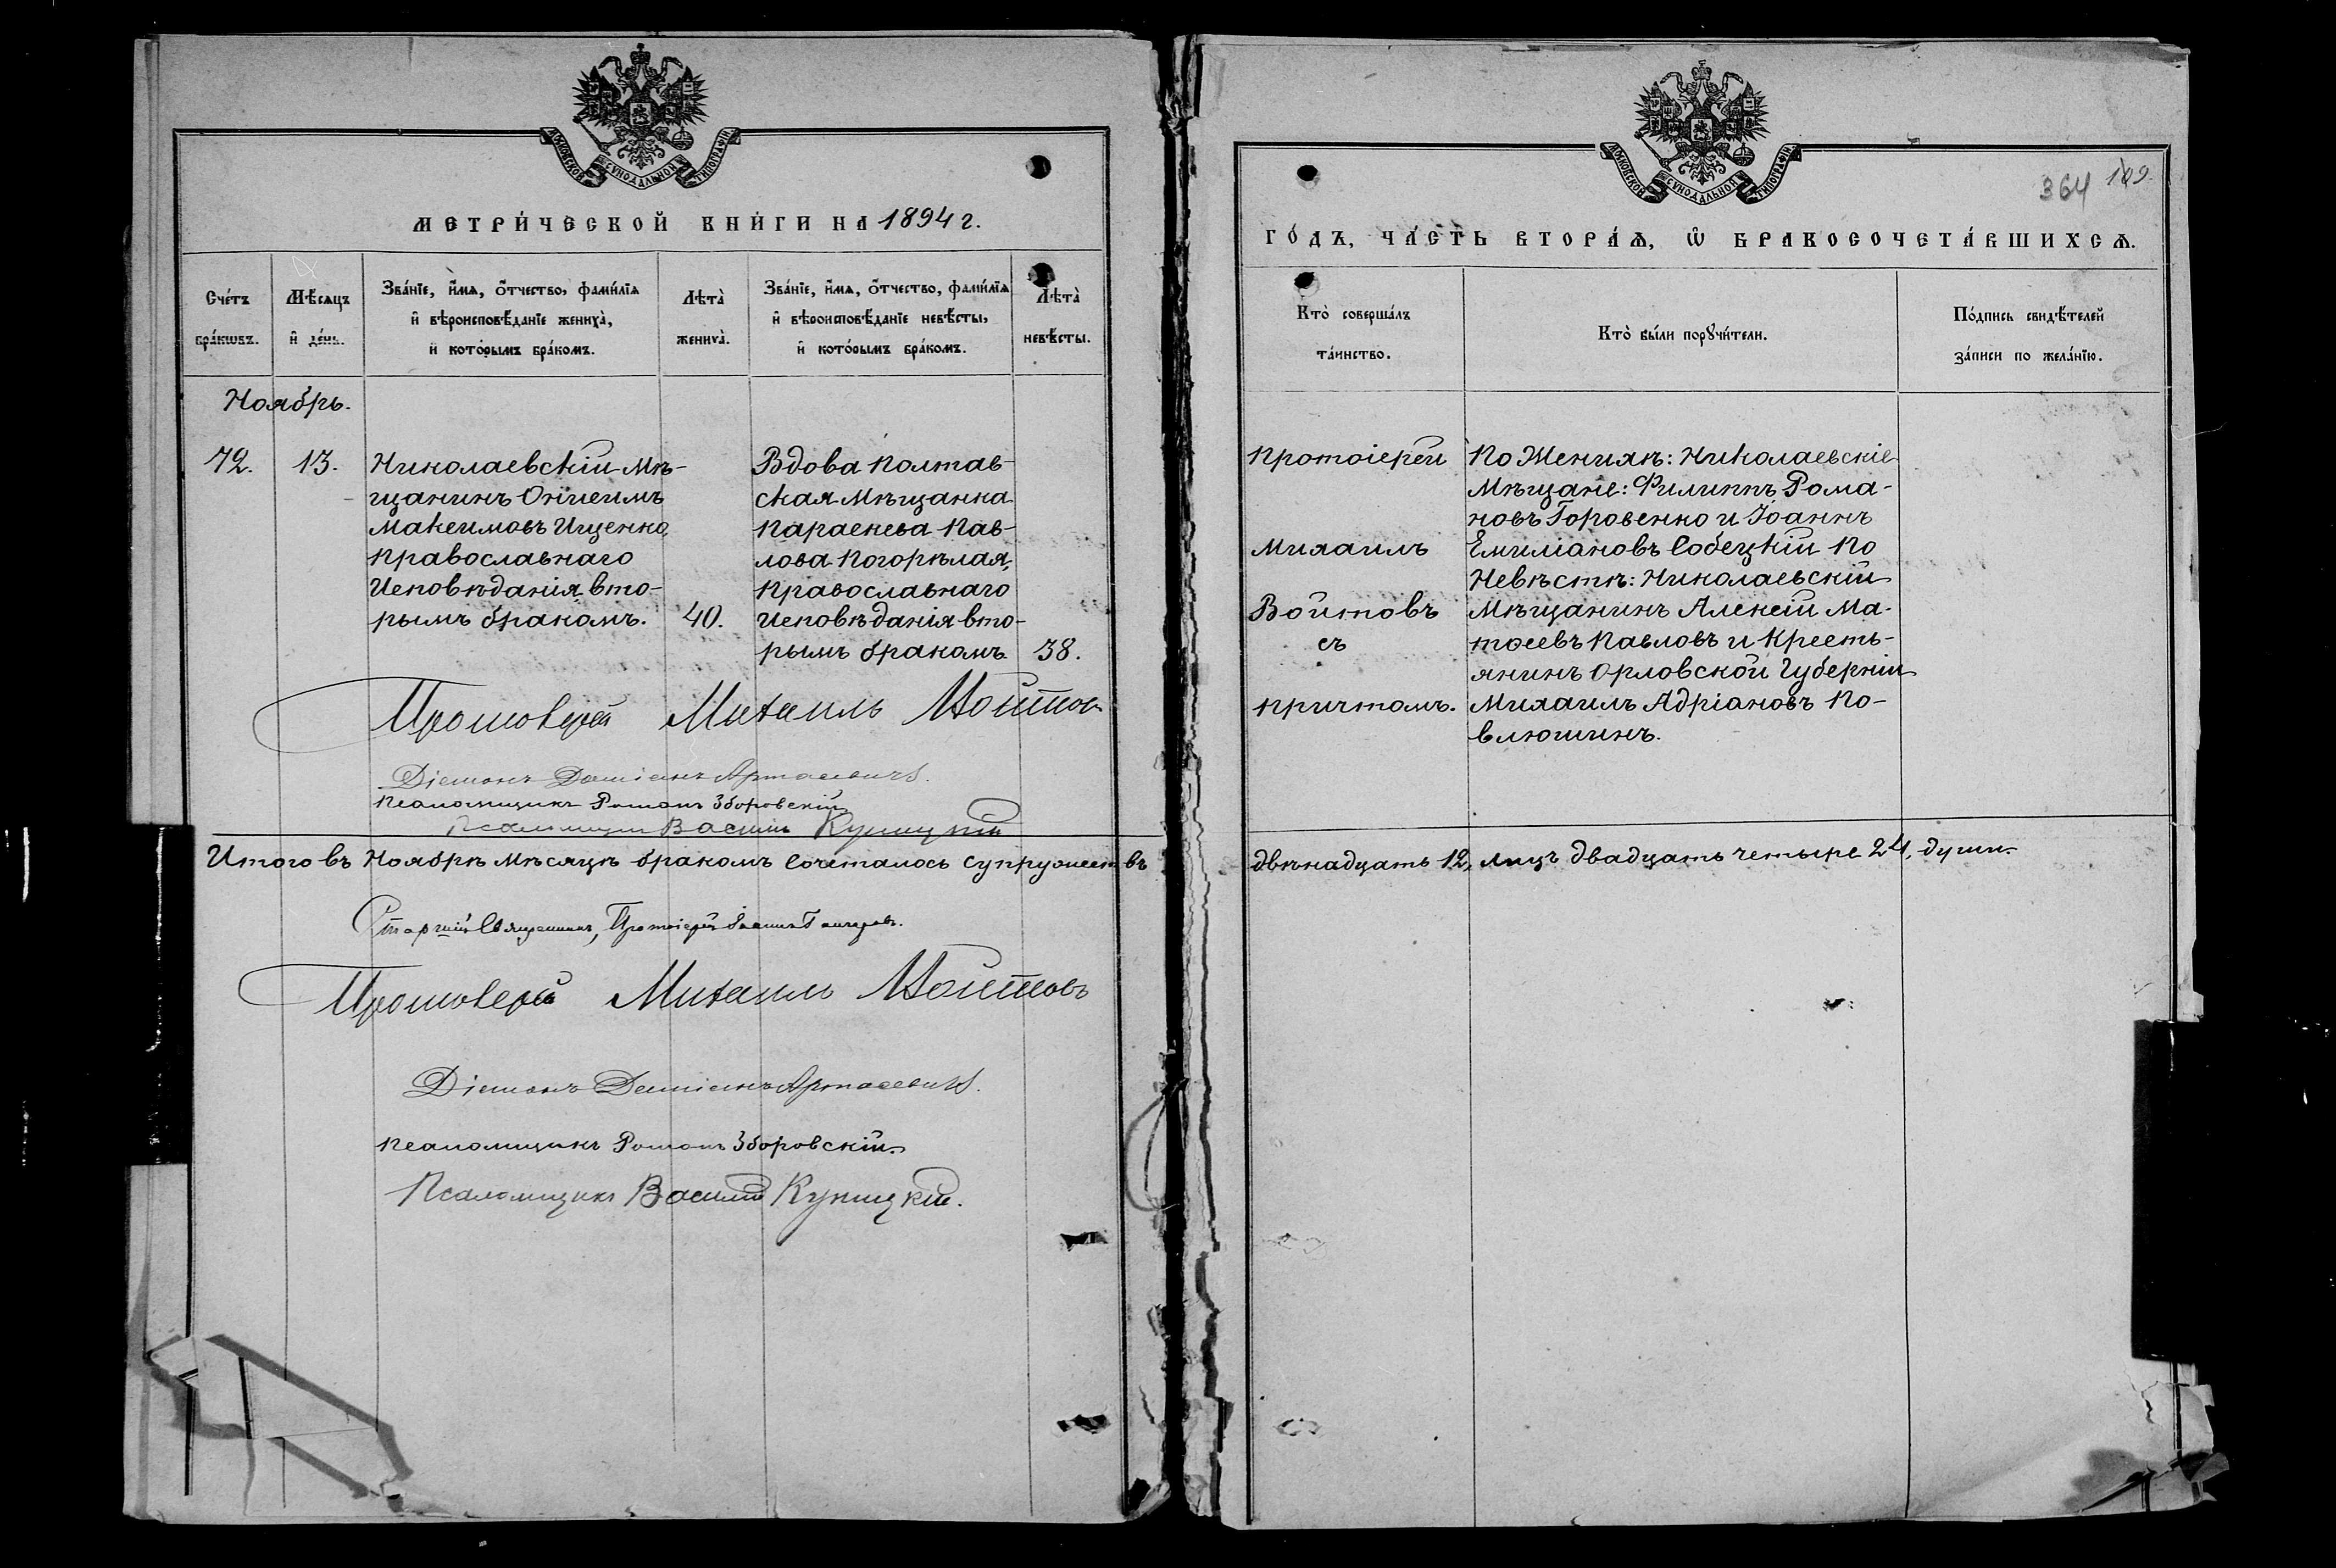 МОСКОВСКОЙ СУНОДАЛЬНОЙ ТИПОГРАФІИ
МЕТРИ́ЧЕСКОЙ КНИ́ГИ НА 1894 г.
Сче́тъ бра́кѡвъ.
Мѣ́сяцъ и҆ де́нь.
Зва́нїе, и҆́мѧ, ѻ҆́тчество, фами́лїѧ
и҆ вѣроисповѣ́данїе жениха̀,
и҆ кото́рымъ бра́комъ.
Лѣта̀ жениха̀.
Зва́нїе, и҆́мѧ, ѻ҆́тчество, фами́лїѧ
и҆ вѣроисповѣ́данїе невѣ́сты,
и҆ кото́рымъ бра́комъ.
Лѣта̀ невѣ́сты.
Ноябрь.
72.
13.
Николаевскій Мѣ-
щанинъ Онисимъ
Максимовъ Ищенко,
Православнаго
Исповѣданія вто-
рымъ бракомъ.
40.
Вдова Полтав-
ская Мѣщанка
Параскева Пав-
лова Погорѣлая,
Православнаго
Исповѣданія вто-
рымъ бракомъ.
38.
Протоіерей Михаилъ Войтов
Діаконъ Даміанъ Артасевичъ.
Псаломщикъ Романъ Зборовскій
Псаломщикъ Василій Купицкій
Итого въ Ноябрѣ Мѣсяцѣ бракомъ сочеталось супружествъ
Старшій Священникъ, Протоіерей
Протоіерей Михаилъ Войтовъ
Діаконъ Даміанъ Артасевичъ.
Псаломщикъ Романъ Зборовскій.
Псаломщикъ Василій Купицкій.
МОСКОВСКОЙ СУНОДАЛЬНОЙ ТИПОГРАФІИ
364 109
ГО́ДЪ, ЧА́СТЬ ВТОРА́Ѧ, Ѡ҆ БРАКОСОЧЕТА́ВШИХСѦ.
Кто̀ соверша́лъ
та́инство.
Кто̀ бы́ли порꙋчи́тели.
По́дпись свидѣ́телей
за́писи по жела́нїю.
Протоіерей
Михаилъ
Войтовъ
съ
причтомъ.
По Женихѣ: Николаевскіе
Мѣщане: Филиппъ Рома-
новъ Горовенко и Іоаннъ
Емиліановъ Собецкій По
Невѣстѣ: Николаевскій
Мѣщанинъ Алексій Ма-
тѳеевъ Павловъ и Кресть-
янинъ Орловской Губерніи
Михаилъ Адріановъ По-
влюшинъ.
двѣнадцать 12, лицъ двадцать четыре 24, души.